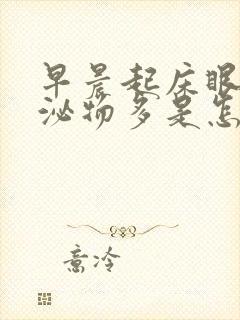 早晨起床眼
泌物多是怎
意冷